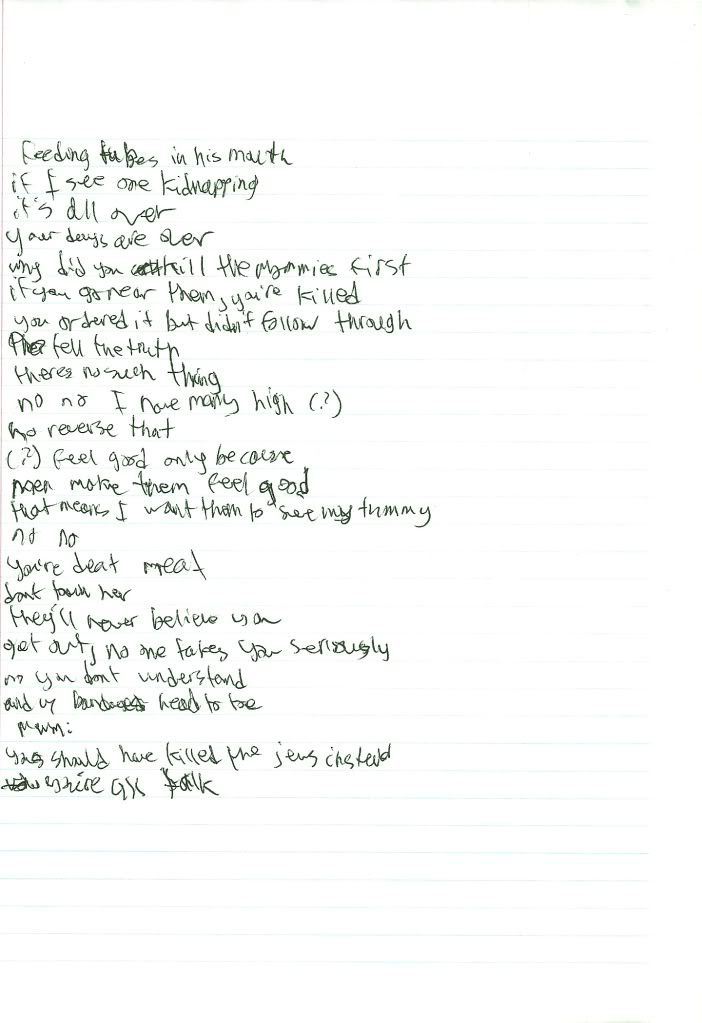 feeding tubes in his mouth
if I see one kidnapping
it's all over
your days are over
why did you kill the mommies first
if you go near them, you're killed
you ordered it but didn't follow through
tell the truth
theres no such thing
no no I have many high (?)
no reverse that
(?) feel good only because
men make them feel good
that means I want them to see my tummy
no no
you're deat meat
dont touch her
they'll never believe you
get out, no one takes you seriously
no you dont understand
and head to toe
mum:
you should have killed the jews instead